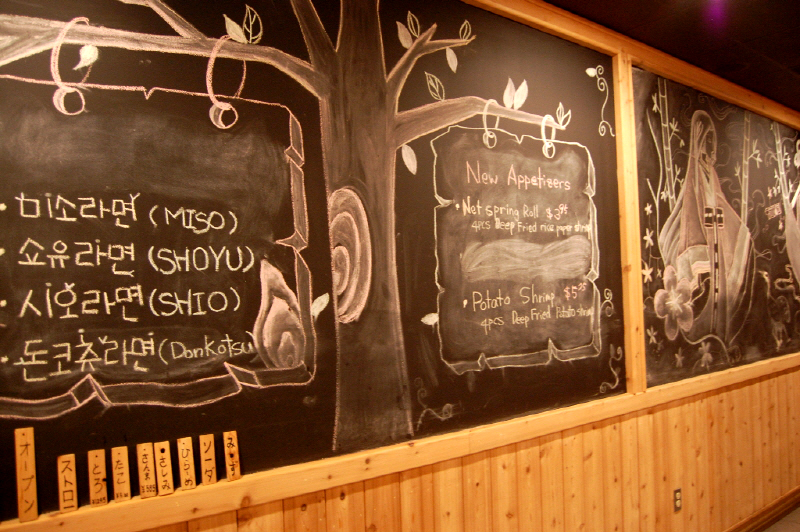 • 미소라면 (MISO)
• 쇼유라면 (SHOYU)
• 시오라면 (SHIO)
• 돈코츠라면 (Donkotsu
New Appetizers
• Net spring Roll $3.95
4pcs Deep Fried rice paper shrimp
• Potato Shrimp $5.25
4pcs Deep Fried Potato shrimp
オープン
ストロー
とろ
たこ
さんま
さしみ
ひらめ
ソーダ
みず